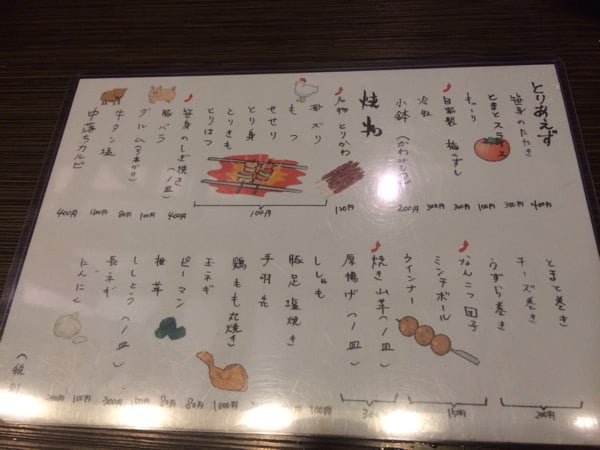 とりあえず
笹身のたたき 400円
とまとスライス 300円
きゅーり 100円
自家製 梅くずし 300円
冷奴 300円
小鉢 200円
焼物
名物 とりかわ 120円
砂ズリ
もつ
せせり
とり身
とりきも
とりはつ
100円
笹身のしぎ焼き(一皿) 400円
豚バラ 100円
グルム 80円
牛タン塩
中落ちカルビ 400円
とまと巻き
チーズ巻き
うずら巻き
200円
なんこつ団子
ミンチボール
ウインナー
150円
焼き山芋(一皿)
厚揚げ(一皿)
ししゃも 100円
豚足塩焼き
手羽先
鶏もも丸焼き 1000円
玉ネギ 80円
ピーマン 80円
椎茸 150円
ししとう(一皿)
長ネギ 100円
にんにく